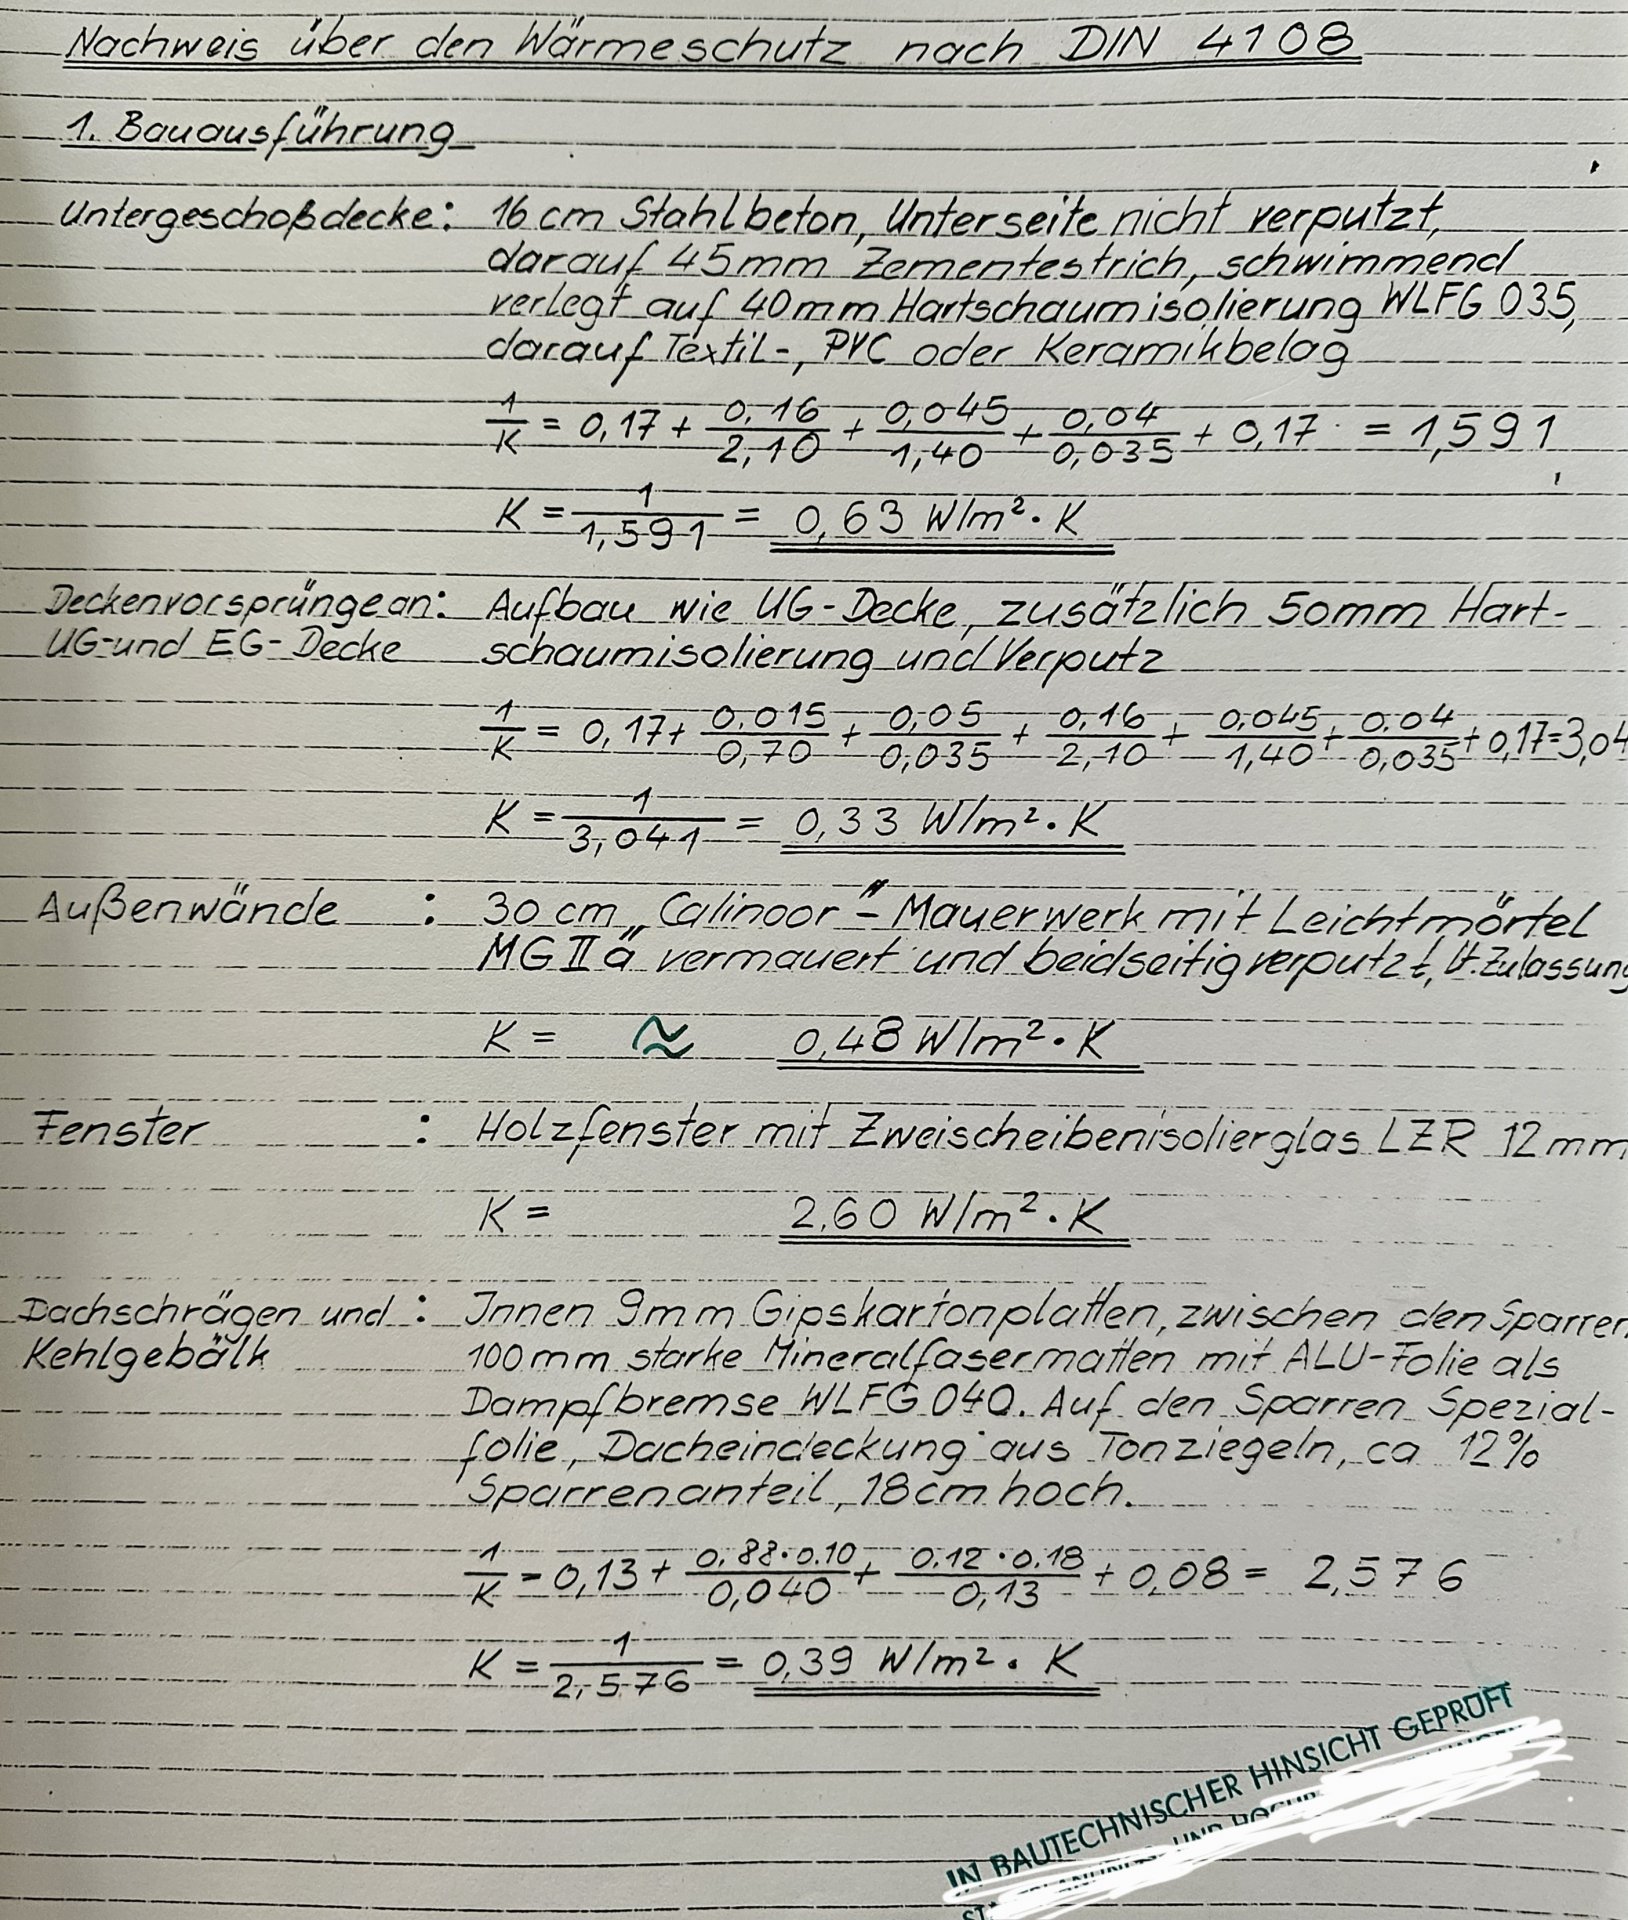 Nachweis über den Wärmeschutz nach DIN 4108
1. Bauausführung
Untergeschoßdecke: 16 cm Stahlbeton, Unterseite nicht verputzt,
darauf 45mm Zementestrich, schwimmend
verlegt auf 40mm Hartschaumisolierung WLFG 035,
darauf Textil-, PVC oder Keramikbelag
1/K = 0,17 + 0,16/2,10 + 0,045/1,40 + 0,04/0,035 + 0,17 = 1,591
K = 1/1,591 = 0,63 W/m²·K
Deckenvorsprünge an: Aufbau wie UG-Decke, zusätzlich 50mm Hart-
UG-und EG-Decke schaumisolierung und Verputz
1/K = 0,17+ 0,015/0,70 + 0,05/0,035 + 0,16/2,10 + 0,045/1,40 + 0,04/0,035 + 0,17=3,04
K = 1/3,041 = 0,33 W/m²·K
Außenwände : 30 cm „Calinoor"- Mauerwerk mit Leichtmörtel
MG II a vermauert und beidseitig verputzt, lt. Zulassung
K = ≈ 0,48 W/m²·K
Fenster : Holzfenster mit Zweischeibenisolierglas LZR 12mm
K = 2,60 W/m²·K
Dachschrägen und : Innen 9mm Gipskartonplatten, zwischen den Sparren
Kehlgebälk 100mm starke Mineralfasermatten mit ALU-Folie als
Dampfbremse WLFG 040. Auf den Sparren Spezial-
folie, Dacheindeckung aus Tonziegeln, ca 12%
Sparrenanteil, 18cm hoch.
1/K = 0,13 + 0,88·0,10/0,040 + 0,12·0,18/0,13 + 0,08 = 2,576
K = 1/2,576 = 0,39 W/m²·K
IN BAUTECHNISCHER HINSICHT GEPRÜFT
UND